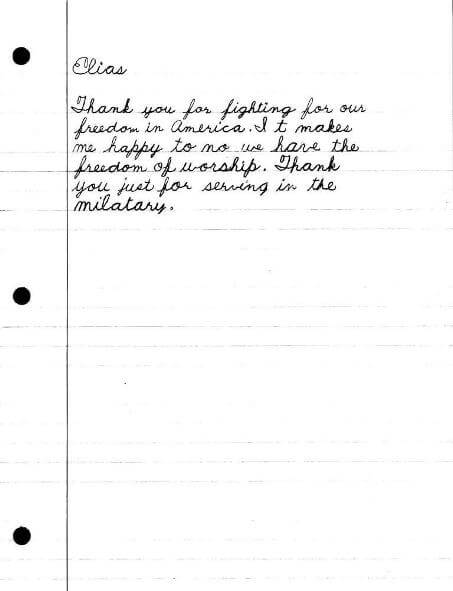 Elias
Thank you for fighting for our
freedom in America. I t makes
me happy to no we have the
freedom of worship. Thank
you just for serving in the
milatary.